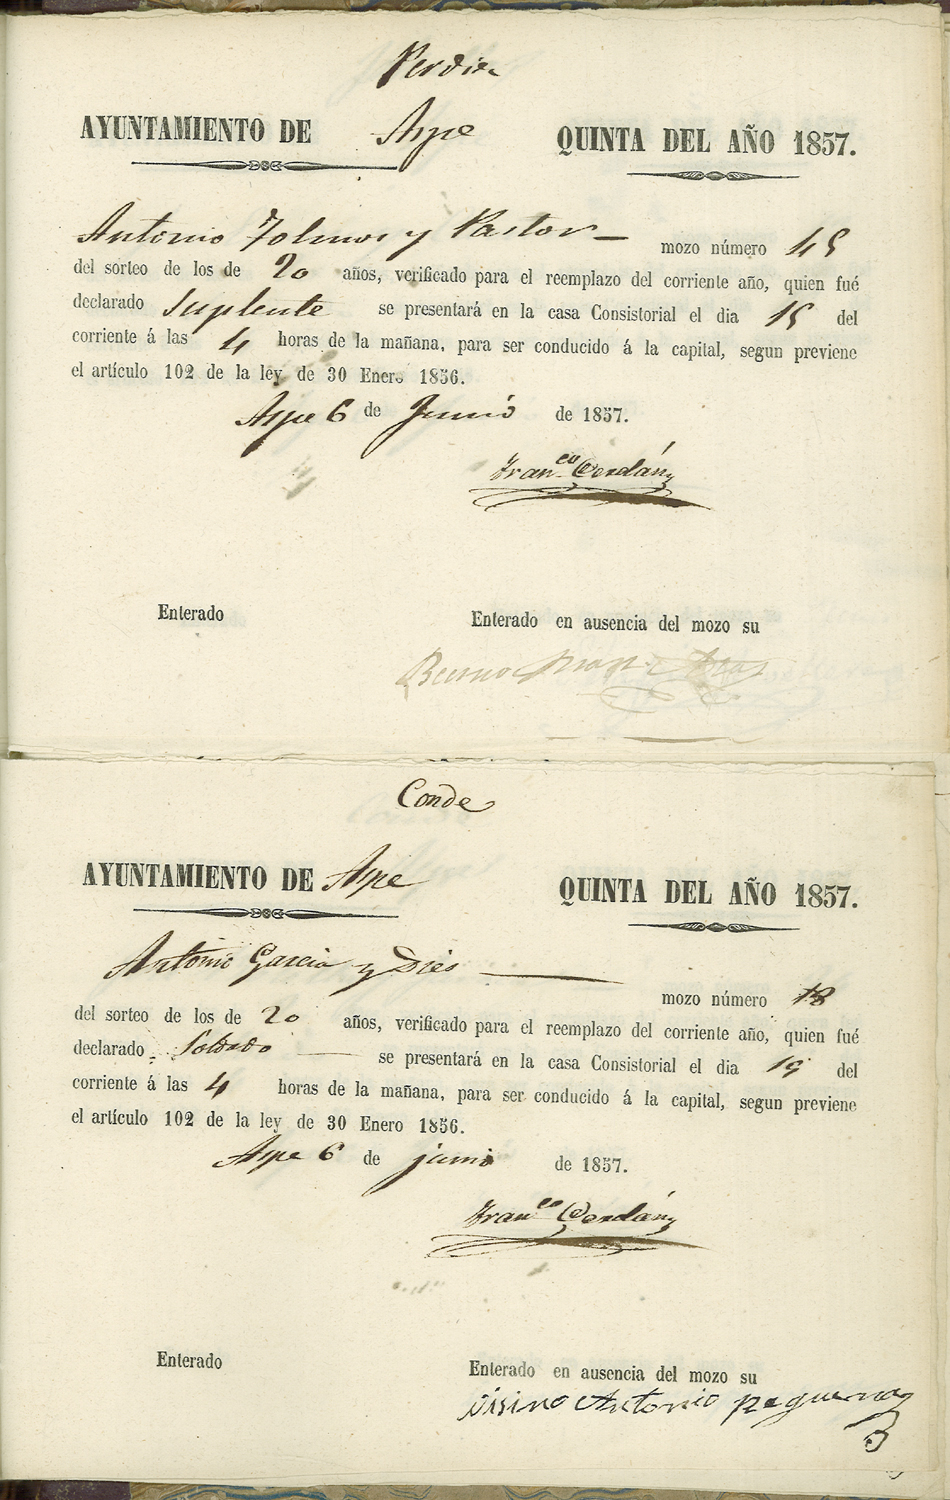 AYUNTAMIENTO DE Aspe QUINTA DEL AÑO 1857.
Antonio y Pastor mozo número 45
del sorteo de los de 20 años, verificado para el reemplazo del corriente año, quien fué
declarado Suplente se presentará en la casa Consistorial el dia 15 del
corriente á las 4 horas de la mañana, para ser conducido á la capital, segun previene
el artículo 102 de la ley de 30 Enero 1856.
Aspe 6 de Junio de 1857.
Fran.co Cerdán
Enterado Enterado en ausencia del mozo su
Conde
AYUNTAMIENTO DE Aspe QUINTA DEL AÑO 1857.
Antonio Garcia y Dies mozo número 18
del sorteo de los de 20 años, verificado para el reemplazo del corriente año, quien fué
declarado Soldado se presentará en la casa Consistorial el dia 15 del
corriente á las 4 horas de la mañana, para ser conducido á la capital, segun previene
el artículo 102 de la ley de 30 Enero 1856.
Aspe 6 de junio de 1857.
Fran.co Cerdán
Enterado Enterado en ausencia del mozo su
visino Antonio